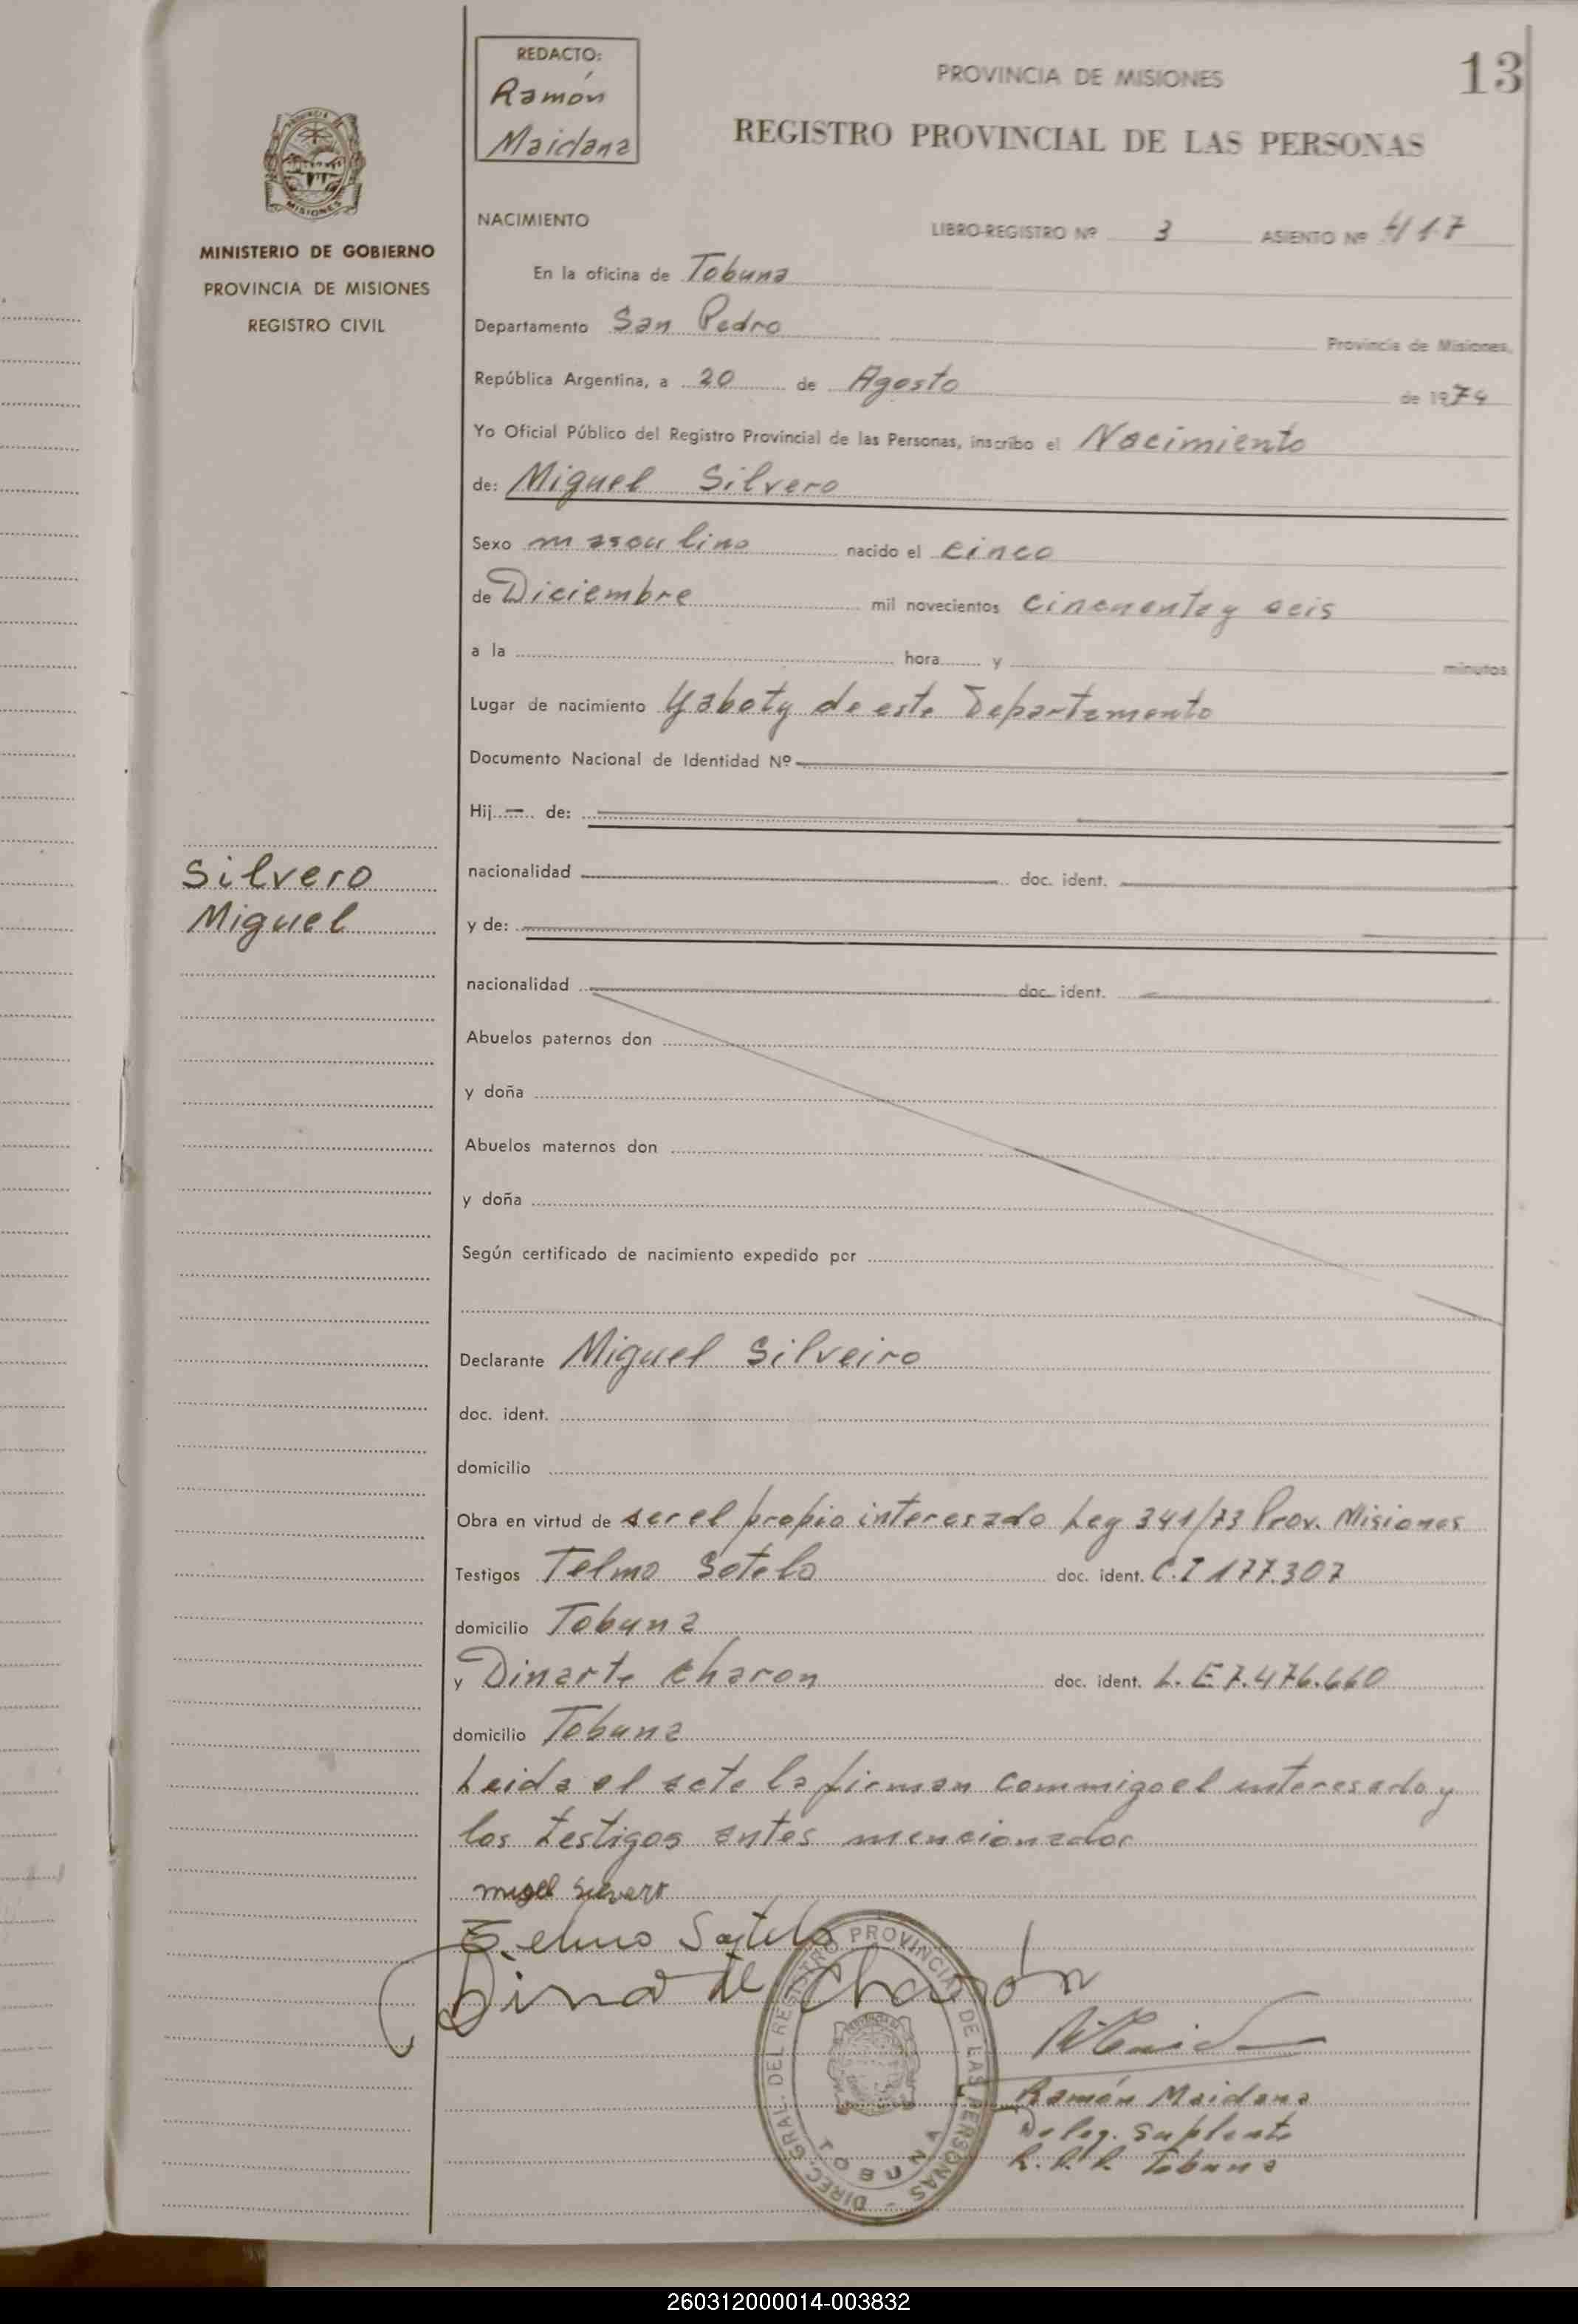 REDACTO:
Ramón
Maidana
PROVINCIA DE MISIONES
13
REGISTRO PROVINCIAL DE LAS PERSONAS
PROVINCIA DE
MISIONES
MINISTERIO DE GOBIERNO
PROVINCIA DE MISIONES
REGISTRO CIVIL
NACIMIENTO
LIBRO-REGISTRO Nº 3 ASIENTO Nº 417
En la oficina de Tobuna
Departamento San Pedro Provincia de Misiones.
República Argentina, a 20 de Agosto de 1974
Yo Oficial Público del Registro Provincial de las Personas, inscribo el Nacimiento
de: Miguel Silvero
Sexo masculino nacido el cinco
de Diciembre mil novecientos cincuenta y seis
a la hora y minutos
Lugar de nacimiento Yaboty de este Departamento
Documento Nacional de Identidad Nº
Hij — de:
Silvero
Miguel
nacionalidad doc. ident.
y de:
nacionalidad doc. ident.
Abuelos paternos don
y doña
Abuelos maternos don
y doña
Según certificado de nacimiento expedido por
Declarante Miguel Silveiro
doc. ident.
domicilio
Obra en virtud de ser el propio interesado Ley 341/73 Prov. Misiones
Testigos Telmo Sotelo doc. ident. C.I 177.307
domicilio Tobuna
y Dinarte Charon doc. ident. L.E 7.476.660
domicilio Tobuna
Leida el acta la firman commigo el interesado y
los testigos antes mencionados
migel Silvero
Telmo Sotelo
Dinarte Charón
Ramón Maidana
Deleg. Suplente
R.P.P. Tobuna
DIREC. GRAL. DEL REGISTRO PROVINCIAL DE LAS PERSONAS - TOBUNA
260312000014-003832